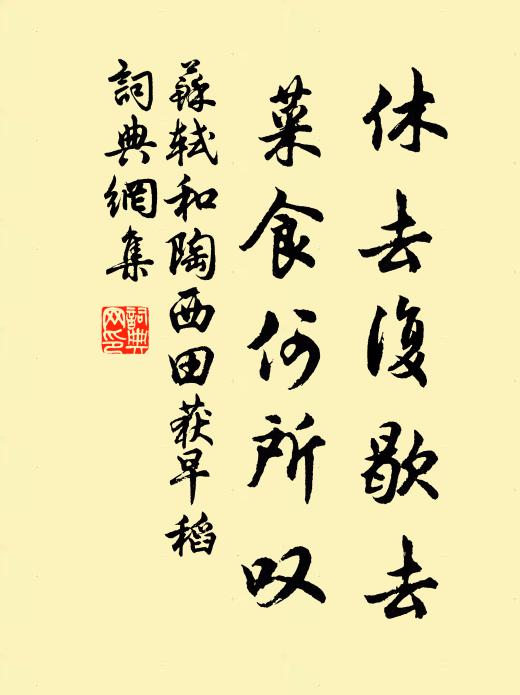 休去復歇去
菜食何所叹
蘇轼和陶西田荻早稻
詞典網集
詞典
网印